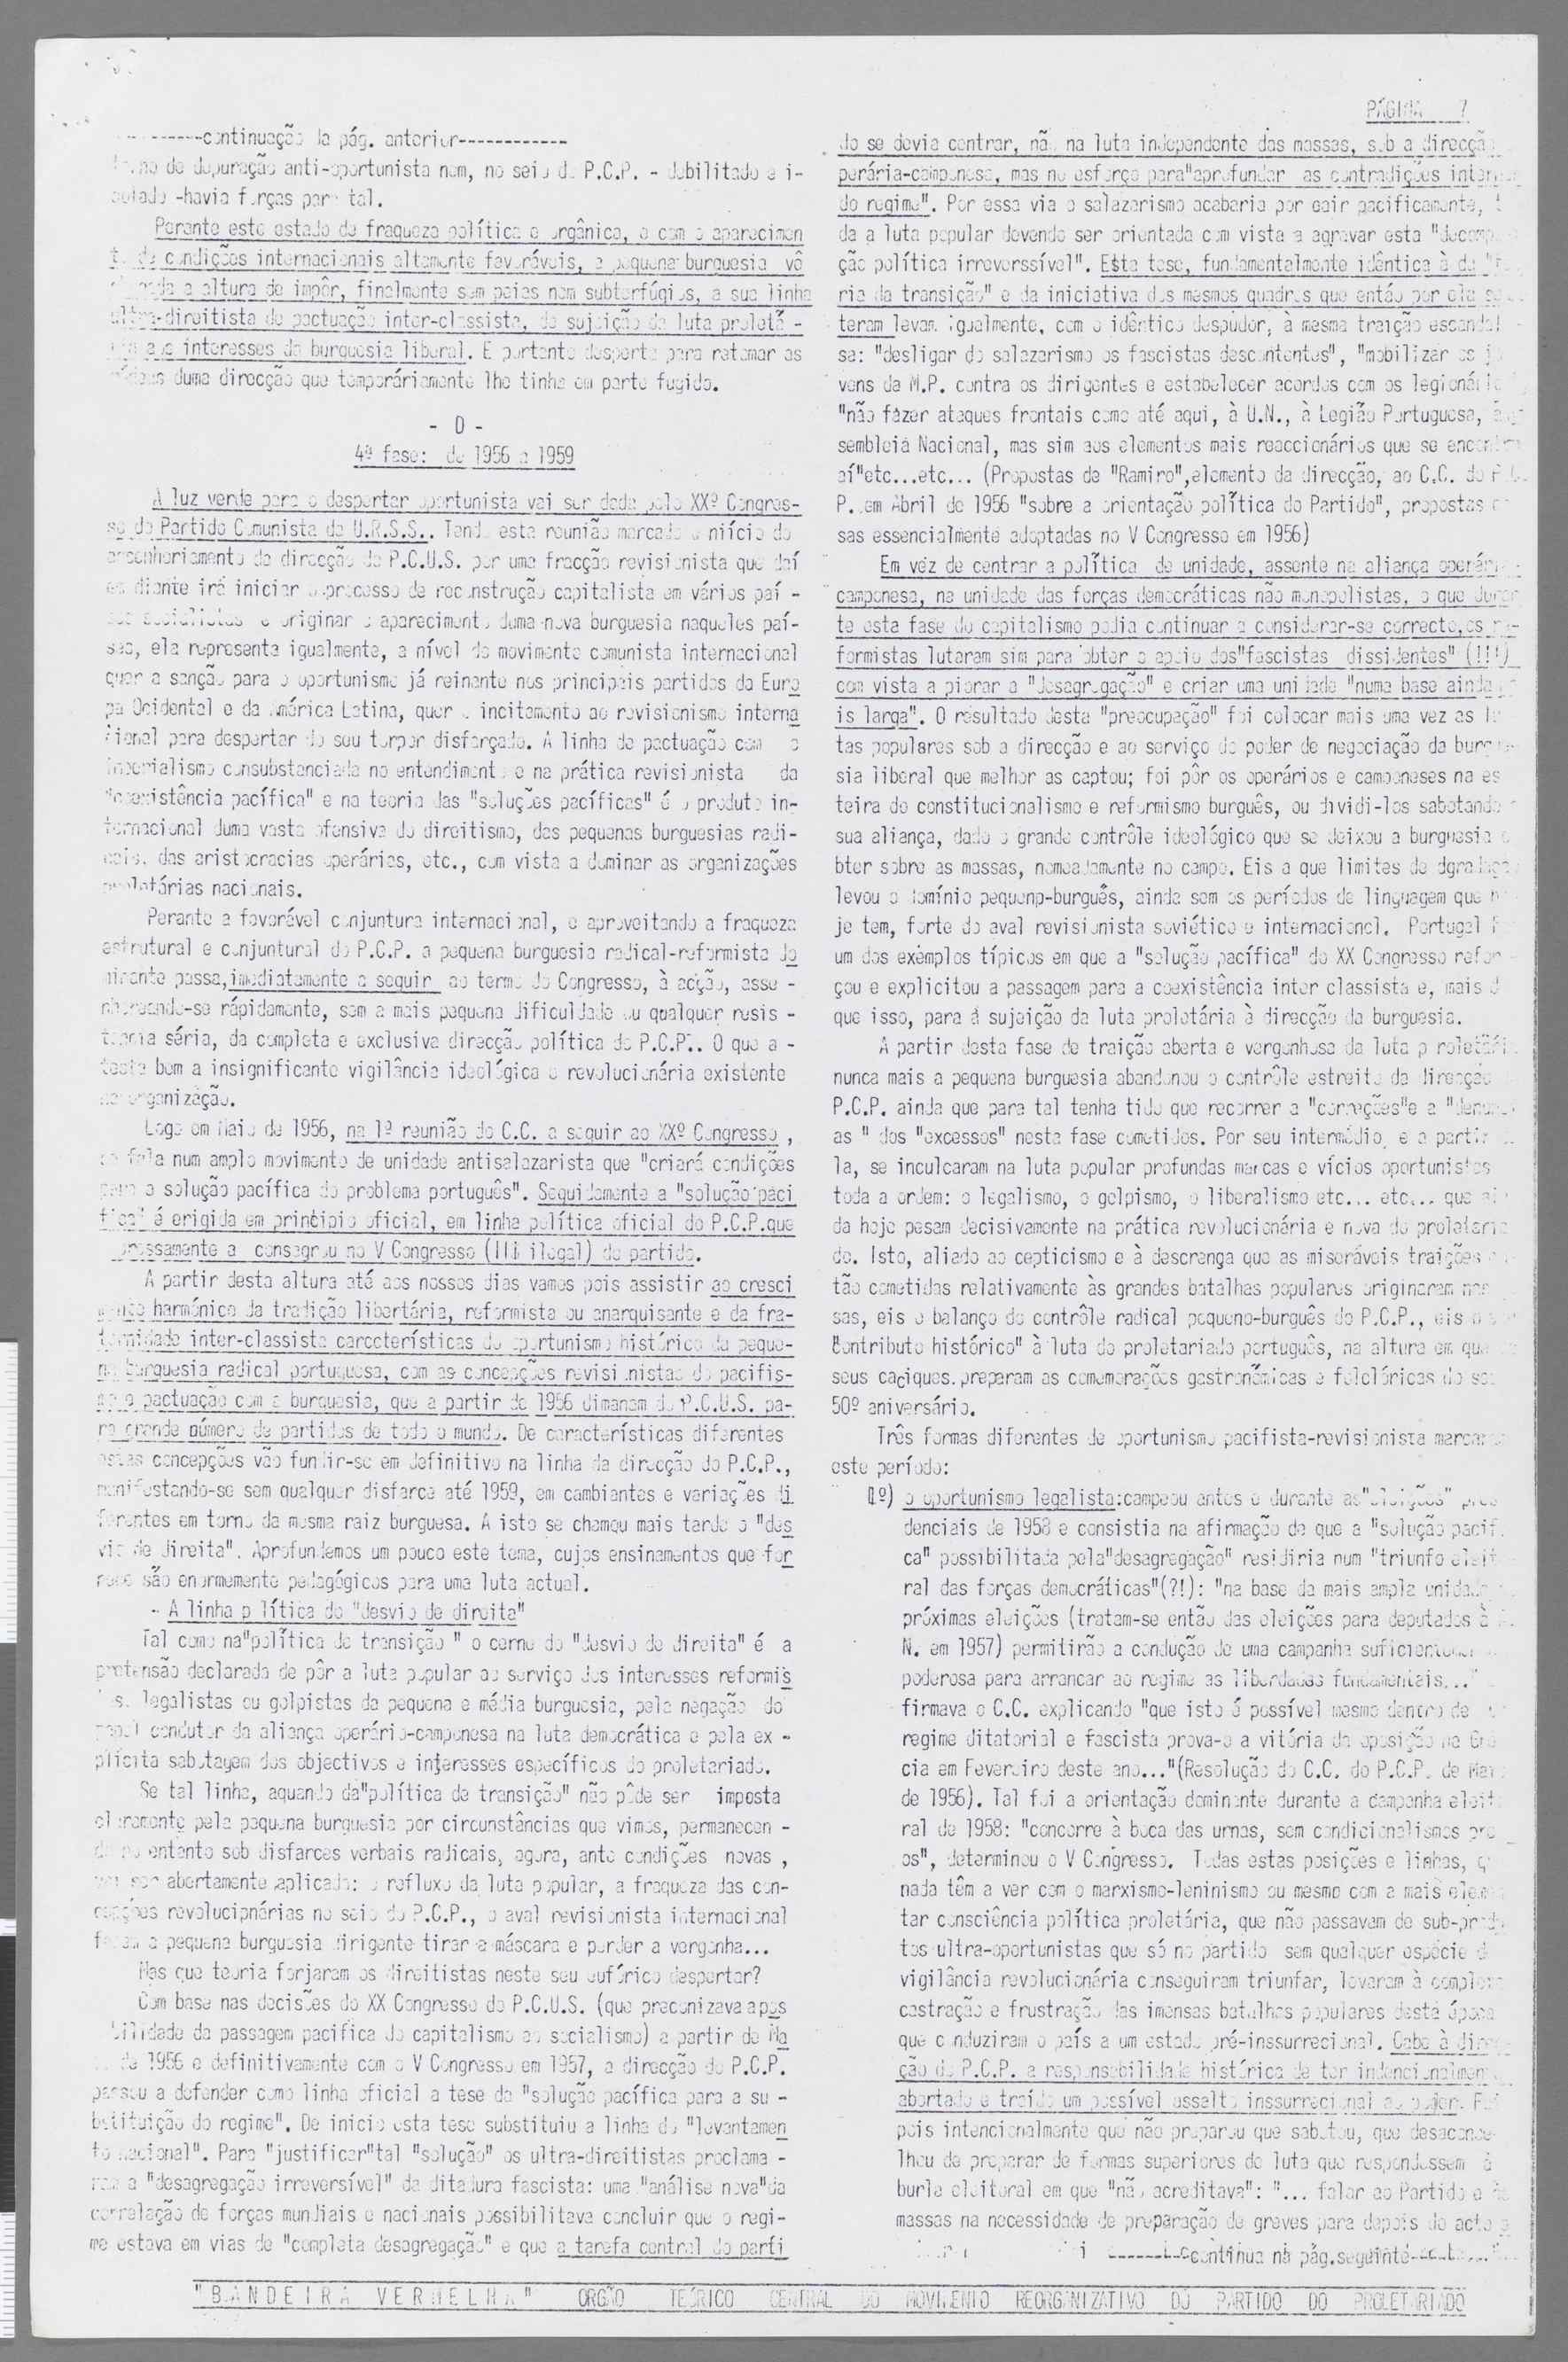 PÁGINA 7
----------continuação da pág. anterior------------
de depuração anti-oportunista nem, no seio do P.C.P. - debilitado e i-
solado -havia forças para tal.
Perante este estado de fraqueza política e orgânica, e com o aparecimen
to de condições internacionais altamente favoráveis, a pequena-burguesia vê
a altura de impôr, finalmente sem peias nem subterfúgios, a sua linha
ultra-direitista de pactuação inter-classista, de sujeição da luta proletá -
ria aos interesses da burguesia liberal. E portanto desperta para retomar as
rédeas duma direcção que temporáriamente lhe tinha em parte fugido.
- O -
4ª fase: de 1956 a 1959
A luz verde para o despertar oportunista vai ser dada pelo XXº Congres-
so do Partido Comunista da U.R.S.S.. Tendo esta reunião marcado o niício do
assenhoriamento da direcção do P.C.U.S. por uma fracção revisionista que daí
em diante irá iniciar o processo de reconstrução capitalista em vários paí -
ses socialistas e originar o aparecimento duma nova burguesia naqueles paí-
ses, ela representa igualmente, a nível do movimento comunista internacional
quer a sanção para o oportunismo já reinante nos principais partidos da Euro
pa Ocidental e da América Latina, quer o incitamento ao revisionismo interna
cional para despertar do seu torpor disfarçado. A linha de pactuação com o
imperialismo consubstanciada no entendimento e na prática revisionista da
"coexistência pacífica" e na teoria das "soluções pacíficas" é o produto in-
ternacional duma vasta ofensiva do direitismo, das pequenas burguesias radi-
cais, das aristocracias operárias, etc., com vista a dominar as organizações
proletárias nacionais.
Perante a favorável conjuntura internacional, e aproveitando a fraqueza
estrutural e conjuntural do P.C.P. a pequena burguesia radical-reformista do
minante passa,imediatamente a seguir ao termo do Congresso, à acção, asse -
nhoreando-se rápidamente, sem a mais pequena dificuldade ou qualquer resis -
tência séria, da completa e exclusiva direcção política do P.C.P.. O que a -
testa bem a insignificante vigilância ideológica e revolucionária existente
na organização.
Logo em Maio de 1956, na 1ª reunião do C.C. a seguir ao XXº Congresso ,
se fala num amplo movimento de unidade antisalazarista que "criará condições
para a solução pacífica do problema português". Seguidamente a "solução paci
fica" é erigida em princípio oficial, em linha política oficial do P.C.P.que
expressamente a consagrou no V Congresso (III ilegal) do partido.
A partir desta altura até aos nossos dias vamos pois assistir ao cresci
mento harmónico da tradição libertária, reformista ou anarquisante e da fra-
ternidade inter-classista características do oportunismo histórico da peque-
na burguesia radical portuguesa, com as concepções revisionistas do pacifis-
mo e pactuação com a burguesia, que a partir de 1956 dimanam do P.C.U.S. pa-
ra grande número de partidos de todo o mundo. De características diferentes
estas concepções vão fundir-se em definitivo na linha da direcção do P.C.P.,
manifestando-se sem qualquer disfarce até 1959, em cambiantes e variações di
ferentes em torno da mesma raiz burguesa. A isto se chamou mais tarde o "des
vio de direita". Aprofundemos um pouco este tema, cujos ensinamentos que for
nece são enormemente pedagógicos para uma luta actual.
- A linha política do "desvio de direita"
Tal como na"política de transição " o cerne do "desvio de direita" é a
pretensão declarada de pôr a luta popular ao serviço dos interesses reformis
tas, legalistas ou golpistas da pequena e média burguesia, pela negação do
papel condutor da aliança operário-camponesa na luta democrática e pela ex -
plícita sabotagem dos objectivos e interesses específicos do proletariado.
Se tal linha, aquando da"política de transição" não pôde ser imposta
claramente pela pequena burguesia por circunstâncias que vimos, permanecen -
do no entanto sob disfarces verbais radicais, agora, ante condições novas ,
vai ser abertamente aplicada: o refluxo da luta popular, a fraqueza das con-
cepções revolucionárias no seio do P.C.P., o aval revisionista internacional
fazem a pequena burguesia dirigente tirar a máscara e perder a vergonha...
Mas que teoria forjaram os direitistas neste seu eufórico despertar?
Com base nas decisões do XX Congresso do P.C.U.S. (que preconizava a pos
bilidade da passagem pacifica do capitalismo ao socialismo) a partir de Ma
de 1956 e definitivamente com o V Congresso em 1957, a direcção do P.C.P.
passou a defender como linha oficial a tese da "solução pacífica para a su -
bstituição do regime". De início esta tese substituiu a linha do "levantamen
to nacional". Para "justificar"tal "solução" os ultra-direitistas proclama -
ram a "desagregação irreversível" da ditadura fascista: uma "análise nova"da
correlação de forças mundiais e nacionais possibilitava concluir que o regi-
me estava em vias de "completa desagregação" e que a tarefa central do parti
do se devia centrar, não na luta independente das massas, sob a direcção
perária-camponesa, mas no esforço para"aprofundar as contradições internas
do regime". Por essa via o salazarismo acabaria por cair pacificamente, t
da a luta popular devendo ser orientada com vista a agravar esta "decompo
ção política irreverssível". Esta tese, fundamentalmente idêntica à da "
ria da transição" e da iniciativa dos mesmos quadros que então por ela se
teram levam igualmente, com o idêntico despudor, à mesma traição escandal
sa: "desligar do salazarismo os fascistas descontentes", "mobilizar os jo
vens da M.P. contra os dirigentes e estabelecer acordos com os legionário
"não fazer ataques frontais como até aqui, à U.N., à Legião Portuguesa, à
sembleia Nacional, mas sim aos elementos mais reaccionários que se encontr
aí"etc...etc... (Propostas de "Ramiro",elemento da direcção, ao C.C. do P.C.
P. em Abril de 1956 "sobre a orientação política do Partido", propostas
sas essencialmente adoptadas no V Congresso em 1956)
Em vez de centrar a política de unidade, assente na aliança operári
camponesa, na unidade das forças democráticas não monopolistas, o que duran
te esta fase do capitalismo podia continuar a considerar-se correcto,os re-
formistas lutaram sim para obter o apoio dos"fascistas dissidentes" (!!!)
com vista a piorar a "desagregação" e criar uma unidade "numa base ainda
is larga". O resultado desta "preocupação" foi colocar mais uma vez as lu
tas populares sob a direcção e ao serviço do poder de negociação da burgue
sia liberal que melhor as captou; foi pôr os operários e camponeses na es
teira do constitucionalismo e reformismo burguês, ou dividi-los sabotando
sua aliança, dado o grande contrôle ideológico que se deixou a burguesia o
bter sobre as massas, nomeadamente no campo. Eis a que limites de dgradaçã
levou o domínio pequeno-burguês, ainda sem os períodos de linguagem que ho
je tem, forte do aval revisionista soviético e internacional. Portugal f
um dos exemplos típicos em que a "solução pacífica" do XX Congresso refor -
çou e explicitou a passagem para a coexistência inter classista e, mais d
que isso, para a sujeição da luta proletária à direcção da burguesia.
A partir desta fase de traição aberta e vergonhosa da luta p roletári
nunca mais a pequena burguesia abandonou o contrôle estreito da direcção
P.C.P. ainda que para tal tenha tido que recorrer a "correções"e a "denunci
as " dos "excessos" nesta fase cometidos. Por seu intermédio, e a partir
la, se inculcaram na luta popular profundas marcas e vícios oportunistas
toda a ordem: o legalismo, o golpismo, o liberalismo etc... etc... que ain
da hoje pesam decisivamente na prática revolucionária e nova do proletaria
do. Isto, aliado ao cepticismo e à descrença que as miseráveis traições
tão cometidas relativamente às grandes batalhas populares originaram nas
sas, eis o balanço do contrôle radical pequeno-burguês do P.C.P., eis o
"contributo histórico" à luta do proletariado português, na altura em que
seus caciques.preparam as comemorações gastronómicas e folclóricas do seu
50º aniversário.
Três formas diferentes de oportunismo pacifista-revisionista marcaram
este período:
(1º) o oportunismo legalista:campeou antes e durante as"eleições" presi
denciais de 1958 e consistia na afirmação de que a "solução pacifi
ca" possibilitada pela"desagregação" residiria num "triunfo eleito
ral das forças democráticas"(?!): "na base da mais ampla unidade
próximas eleições (tratam-se então das eleições para deputados à
N. em 1957) permitirão a condução de uma campanha suficientemen
poderosa para arrancar ao regime as liberdades fundamentais..."
firmava o C.C. explicando "que isto é possível mesmo dentro de
regime ditatorial e fascista prova-o a vitória da oposição na Gré
cia em Fevereiro deste ano..."(Resolução do C.C. do P.C.P. de Mai
de 1956). Tal foi a orientação dominante durante a campanha eleito
ral de 1958: "concorre à boca das urnas, sem condicionalismos pré
os", determinou o V Congresso. Todas estas posições e linhas, q
nada têm a ver com o marxismo-leninismo ou mesmo com a mais elemen
tar consciência política proletária, que não passavam de sub-produ
tos ultra-oportunistas que só no partido sem qualquer espécie d
vigilância revolucionária conseguiram triunfar, levaram à completa
castração e frustração das imensas batalhas populares desta época
que conduziram o país a um estado pré-inssurrecional. Cabe à direc
ção do P.C.P. a responsabilidade histórica de ter indencionalmen
abortado e traído um possível assalto inssurrecional ao poder. Foi
pois intencionalmente que não preparou que sabotou, que desaconse
lhou de preparar de formas superiores de luta que respondessem à
burla eleitoral em que "não acreditava": "... falar ao Partido e às
massas na necessidade de preparação de greves para depois do acto e
--------continua na pág.seguinte--------
"BANDEIRA VERMELHA" ORGÃO TEÓRICO CENTRAL DO MOVIMENTO REORGANIZATIVO DO PARTIDO DO PROLETARIADO